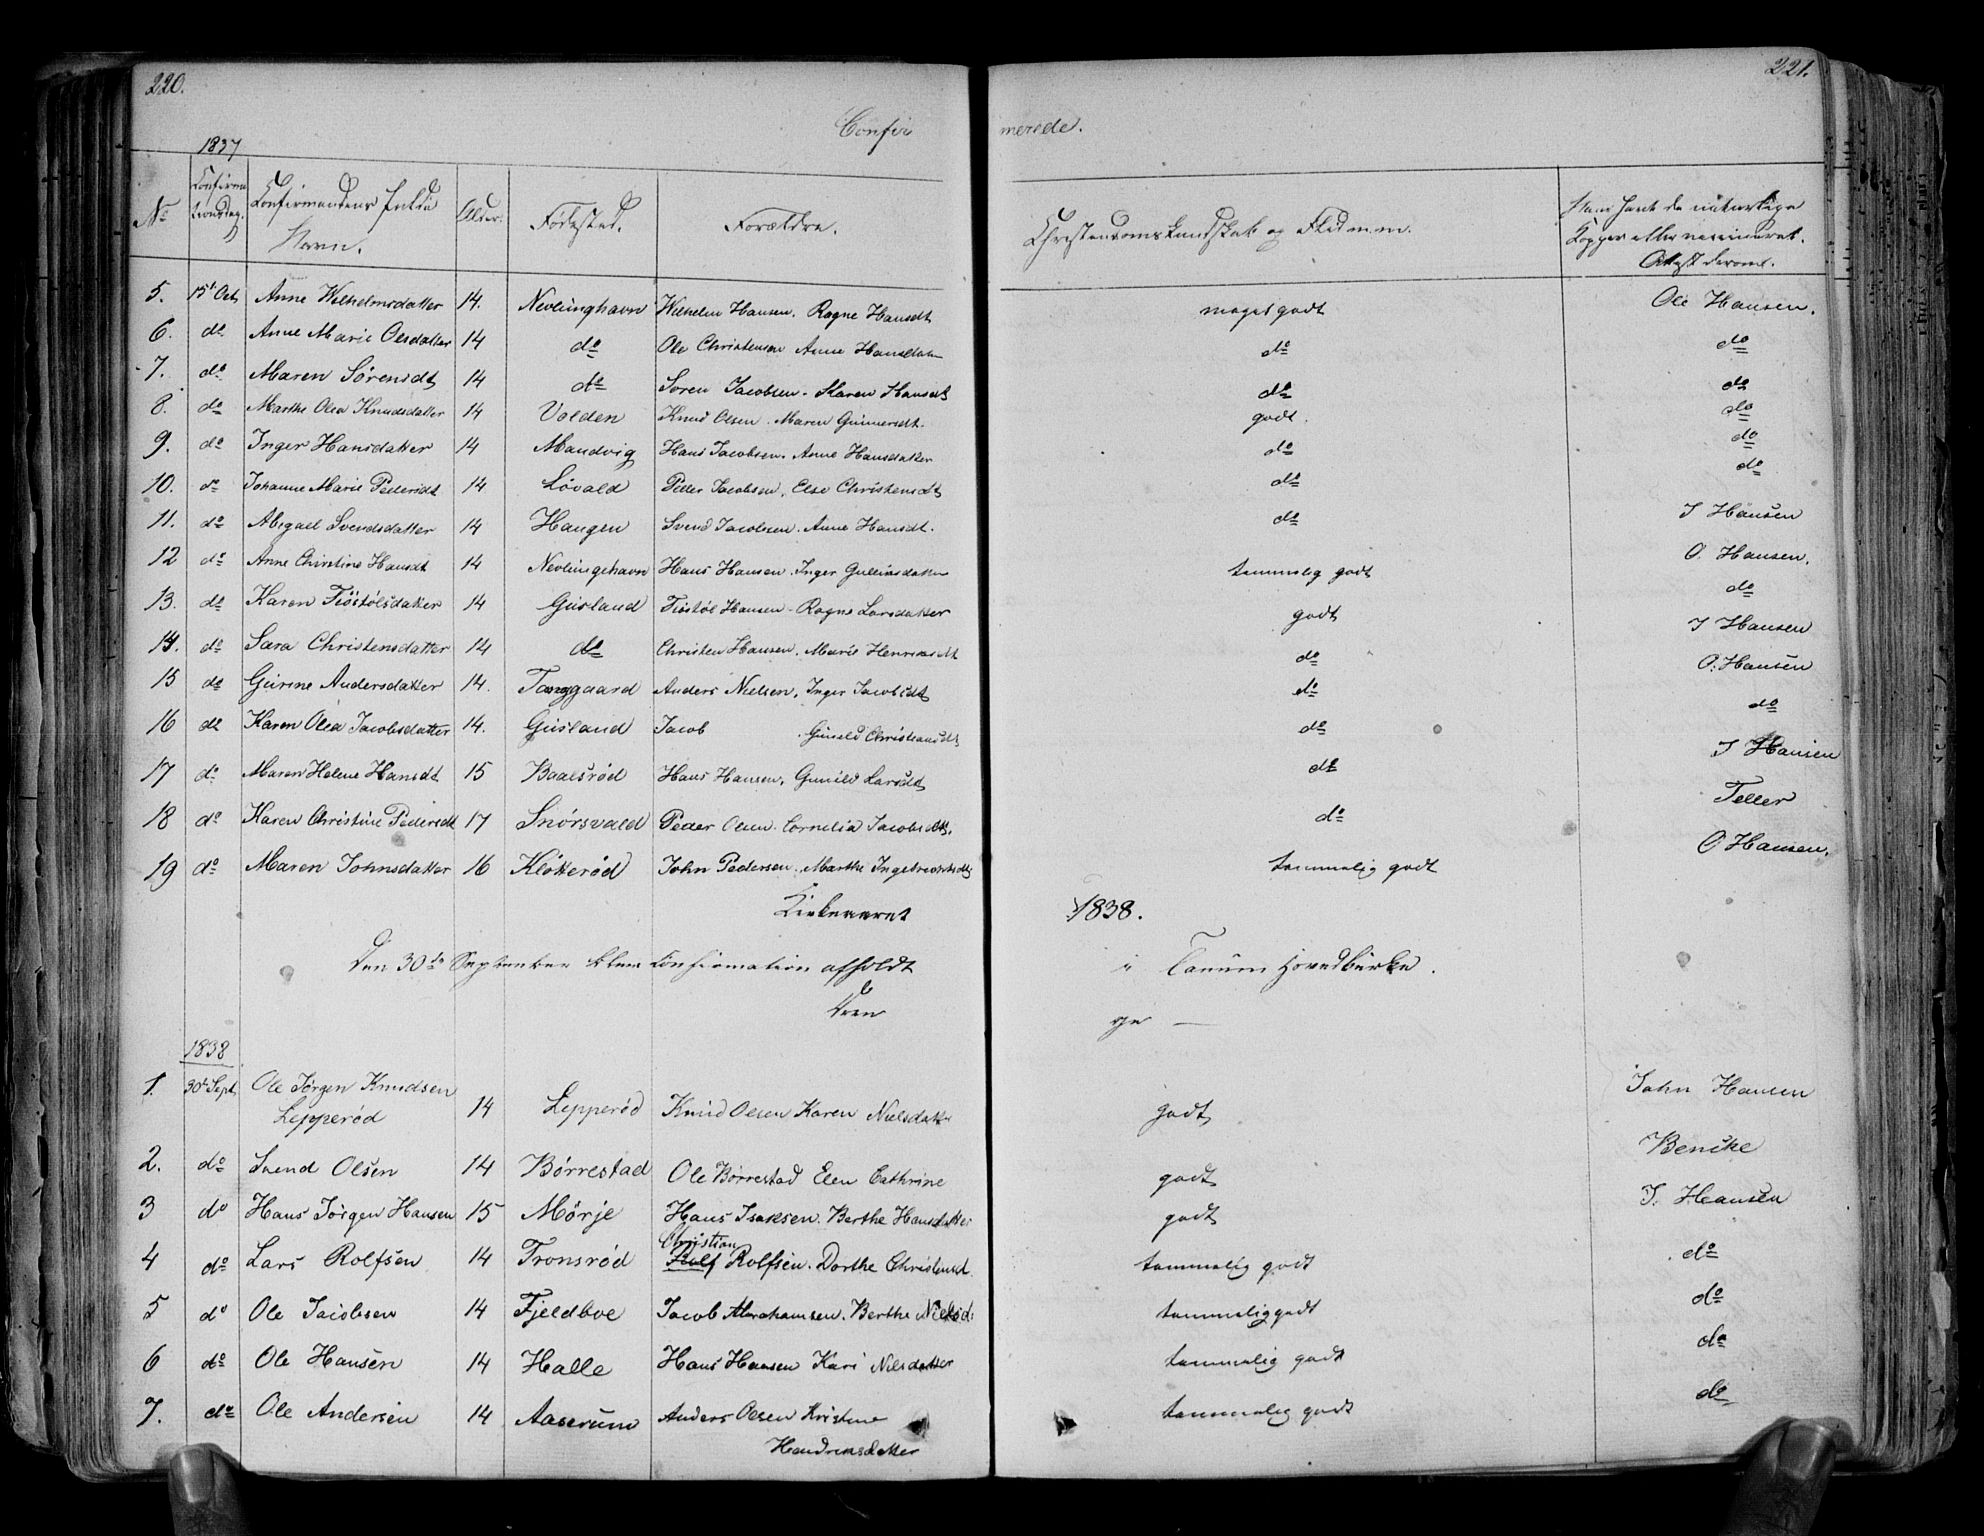 220.
221.
Confir merede.
1837
No
Confirma tionsdag.
Confirmandens fulde Navn.
Alder.
Fødested.
Forældre.
Christendomskundskab og Flid m.m.
Hans havt de naturlige Kopper eller vaccineret. Attest derom.
5. 15de Oct Anne Wilhelmsdatter 14. Nevlunghavn Wilhelm Hansen. Ragne Hansdt meget godt Ole Hansen.
6. do Anne Marie Olsdatter 14 do Ole Christensen Anne Hansdatter do do
7. do. Maren Sørensdt 14 do Soren Jacobsen. Karen Hansdt do do
8. do Marthe Olea Knudsdatter 14 Valden Knud Olsen. Maren Gunnersdt. godt. do
9. do Inger Hansdatter 14 Mandvig Hans Jacobsen. Anne Hansdatter do do
10. do Johanne Marie Pedersdt 14 Løvald Peder Jacobsen, Else Christensdt do do
11. do Abigael Svendsdatter 14 Haugen Svend Jacobsen. Anne Hansdt. do J Hansen
12 do Anne Christine Hansdt 14 Nevlunghavn Hans Hansen. Inger Gulliksdatter temmelig godt O. Hansen.
13. do Karen Tiostolsdatter 14 Gusland Tiostol Hansen - Ragne Larsdatter godt do
14. do Sara Christensdatter 14 do Christen Hansen. Marie Henriksdt do J Hansen
15 do Gurine Andersdatter 14. Tanggaard Anders Nielsen, Inger Jacobsdt do O. Hansen
16 do Karen Olea Jacobsdatter 14. Gusland Jacob . Gunild Christiansdt do do
17 do Maren Helene Hansdt 15 Baalsrød Hans Hansen, Gunild Larsdt do J Hansen
18 do Karen Christine Pedersdt 17 Snørsvald Peder Olsen. Cornelia Jacobsdt. do Teller
19 do Maren Johnsdatter 16 Kløtterød John Pedersen. Marthe Ingebretsdt temmelig godt O Hansen.
Kirkeaaret 1838.
Den 30de September blev Confirmation afholdt i Tanum Hovedkirke.
Dren ge —
1838
1. 30te Sept Ole Jørgen Knudsen Lepperød 14 Lepperød Knud Olsen Karen Nielsdatter godt John Hansen
2. do Svend Olsen 14 Børrestad Ole Børrestad Elen Cathrine godt Bencke
3 do Hans Jørgen Hansen 15 Mørje Hans Isaksen. Berthe Hansdatter godt J. Hansen
4 do Lars Rolfsen 14 Tronsrød Christian Rolf Rolfsen. Dorthe Christensd. temmelig godt do
5 do Ole Jacobsen 14 Fjeldboe Jacob Abrahamsen. Berthe Nielsd: temmelig godt do
6 do Ole Hansen 14 Halle Hans Hansen Kari Nilsdatter temmelig godt do
7. do Ole Andersen 14 Aaserum Anders Olsen Kristine Hendriksdatter temmelig godt do